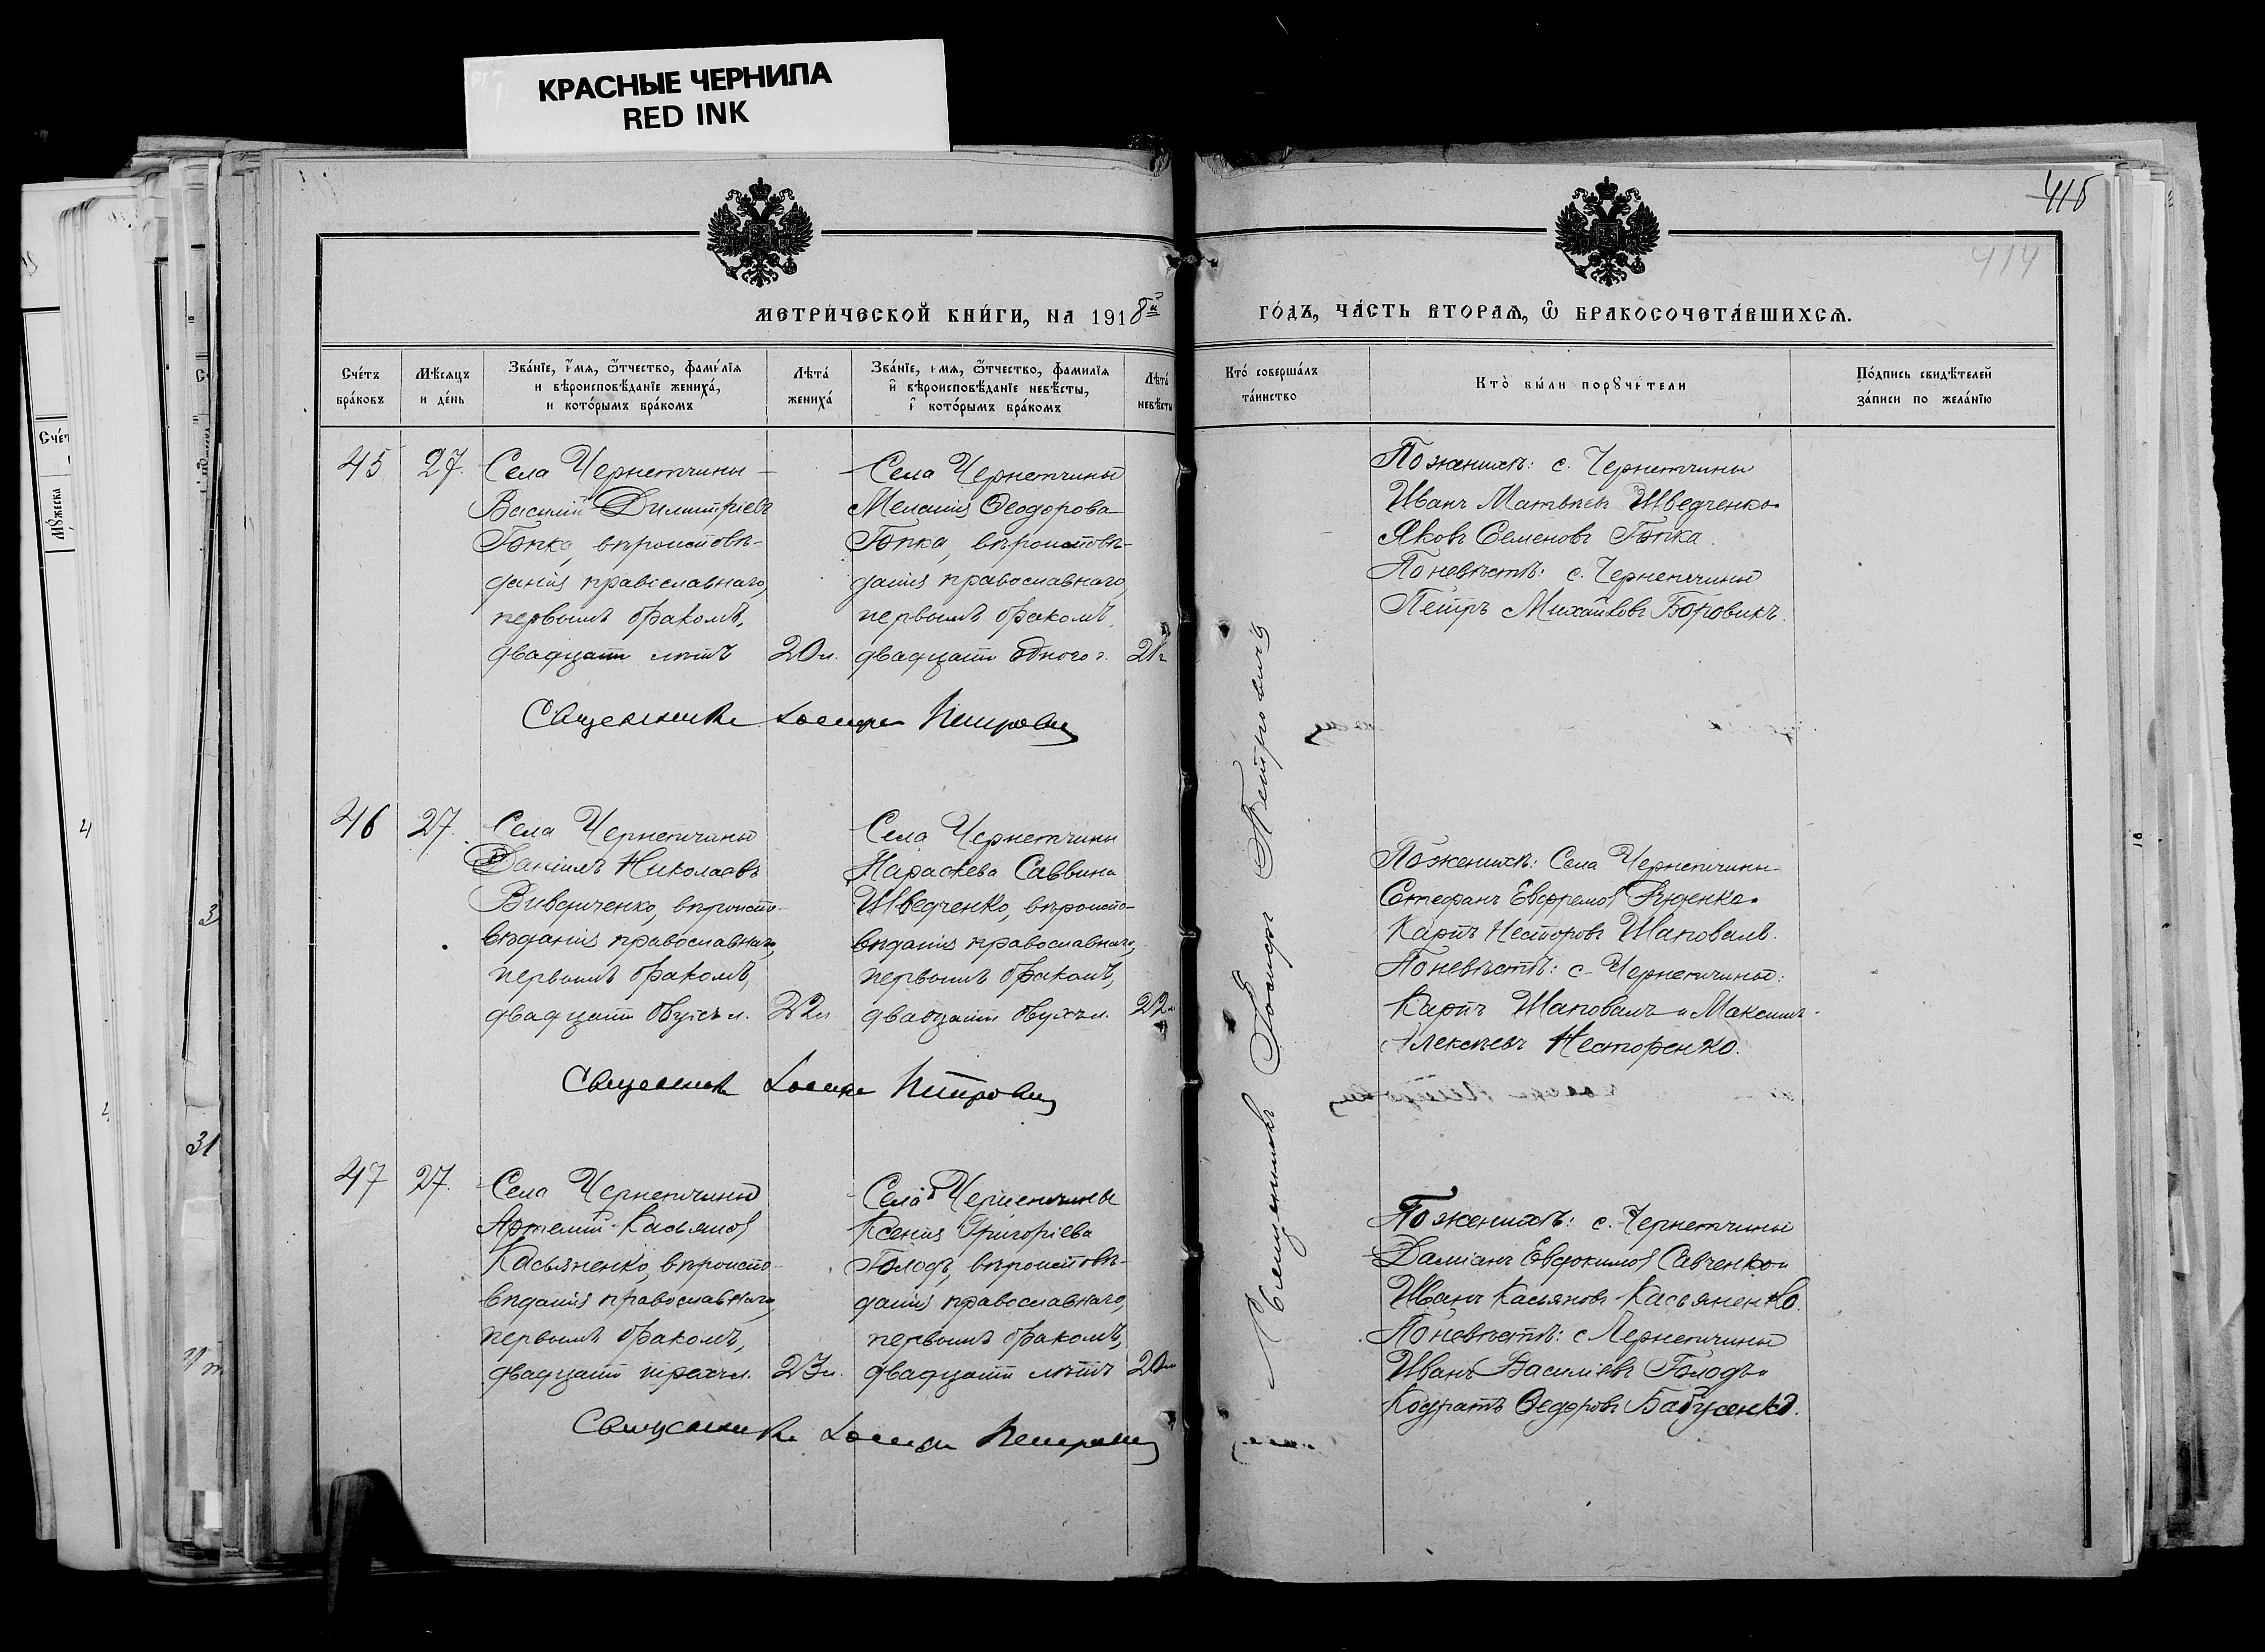 КРАСНЫЕ ЧЕРНИЛА
RED INK
415
414
МЕТРИ́ЧЕСКОЙ КНИ́ГИ, НА 1918й
ГО́ДЪ, ЧА́СТЬ ВТОРАѦ, Ѽ БРАКОСОЧЕТА́ВШИХСѦ.
Сче́тъ бра́ковъ
Мѣ́сяцъ и де́нь
Зва́нїе, и҆́мѧ, ѻ҆́тчество, фами́лїѧ и вѣроисповѣ́данїе жениха́, и кото́рымъ бра́комъ
Лѣта́ жениха́
Зва́нїе, и҆мѧ, ѻ҆́тчество, фамилїѧ и҆ вѣроисповѣ́данїе невѣ́сты, и҆ кото́рымъ бра́комъ
Лѣта́ невѣ́сты
Кто́ соверша́лъ та́инство
Кто̀ бы́ли порꙋчи́тели
По́дпись свидѣ́телей за́писи по жела́нїю
45
27.
Села Чернетчины
Василій Димитріевъ
Гопка, вѣроисповѣ-
данія православнаго,
первымъ бракомъ,
двадцати лѣтъ
20 л.
Села Чернетчины
Меланія Ѳеодорова
Гопка, вѣроисповѣ-
данія православнаго,
первымъ бракомъ,
двадцати одного г.
21 г
Священникъ Іосифъ Петровскій
По женихѣ: с. Чернетчины
Иванъ Матвѣевъ Шведченко и
Яковъ Семеновъ Гопка.
По невѣстѣ: с. Чернетчины
Петръ Михайловъ Боровикъ.
46
27.
Села Чернетчины
Даніилъ Николаевъ
вѣроиспо-
вѣданія православнаго,
первымъ бракомъ,
двадцати двухъ л.
22 л
Села Чернетчины
Параскева Саввина
Шведченко, вѣроиспо-
вѣданія православнаго,
первымъ бракомъ,
двадцати двухъ л.
22 л.
Священникъ Іосифъ Петровскій
По женихѣ: Села Чернетчины
Стефанъ Евфремовъ
Карпъ Несторовъ Шаповалъ.
По невѣстѣ: с. Чернетчины:
Карпъ Шаповалъ и Максимъ
Алексѣевъ Несторенко.
47
27.
Села Чернетчины
Артемій Касьяновъ
Касьяненко, вѣроиспо-
вѣданія православнаго,
первымъ бракомъ,
двадцати трехъ л.
23 л.
Села Чернетчины
Ксенія Григоріева
Голодъ, вѣроисповѣ-
данія православнаго,
первымъ бракомъ,
двадцати лѣтъ
20 л
Священникъ Іосифъ Петровскій
По женихѣ: с. Чернетчины
Даміанъ Евдокимовъ Савченко и
Иванъ Касьяновъ Касьяненко.
По невѣстѣ: с Чернетчины
Иванъ Василіевъ Голодъ и
Кодратъ Ѳедоровъ Бабусенко.
Священникъ Іосифъ